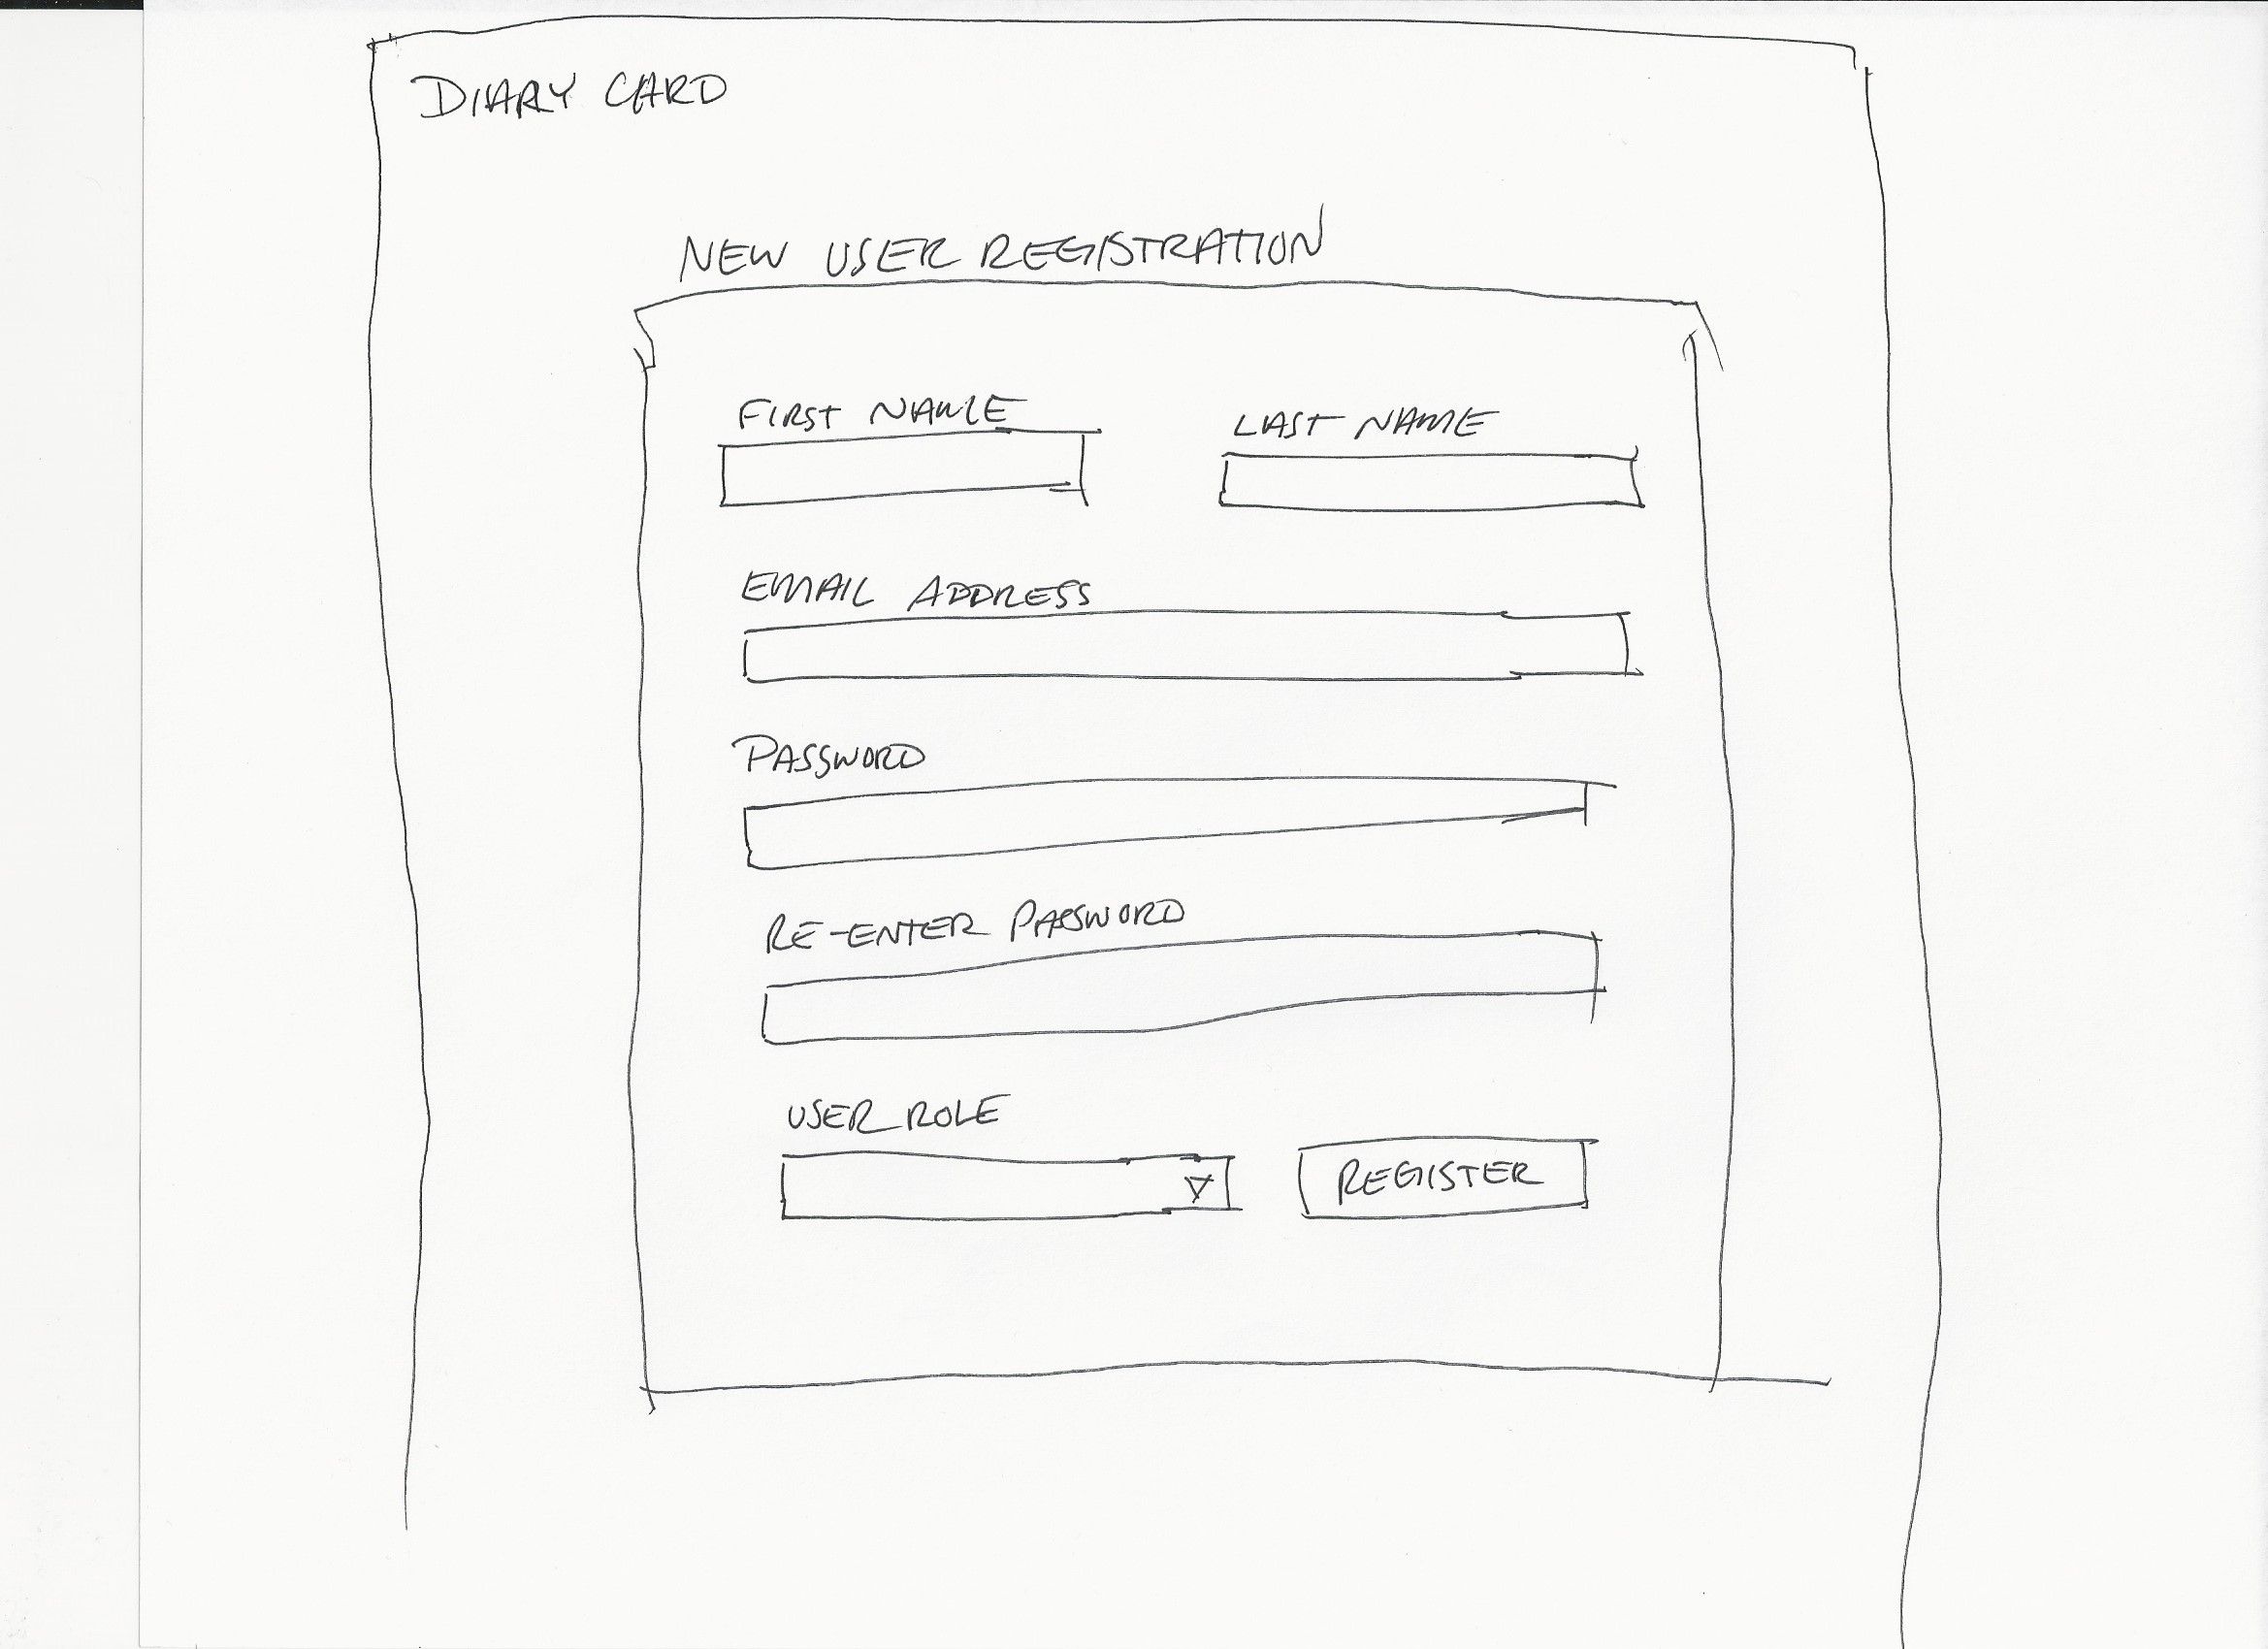 DIARY CARD
NEW USER REGISTRATION
FIRST NAME
LAST NAME
EMAIL ADDRESS
PASSWORD
RE-ENTER PASSWORD
USER ROLE
REGISTER